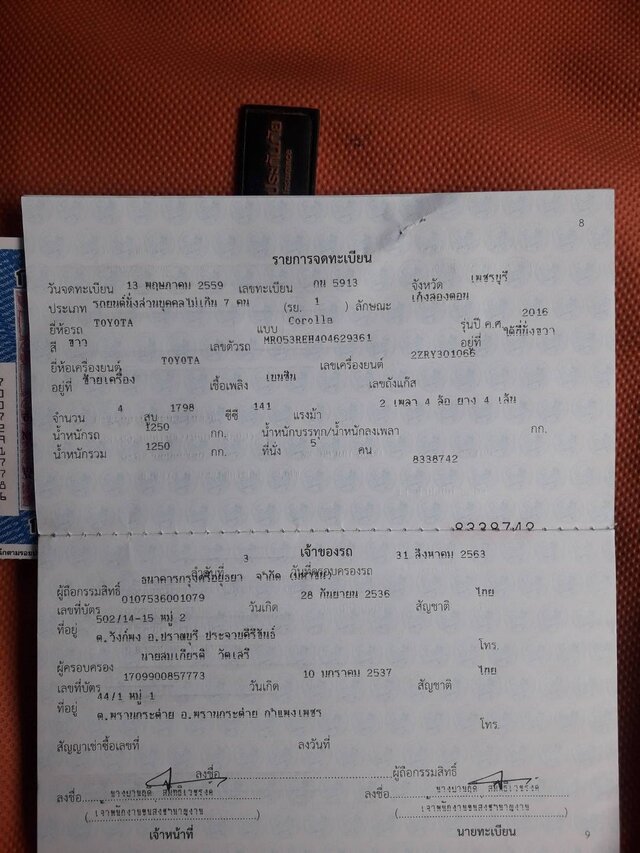 ประกันภัย
8
รายการจดทะเบียน
วันจดทะเบียน 13 พฤษภาคม 2559 เลขทะเบียน กน 5913 จังหวัด เพชรบุรี
ประเภท รถยนต์นั่งส่วนบุคคลไม่เกิน 7 คน (รย. 1 ) ลักษณะ เก๋งสองตอน
ยี่ห้อรถ TOYOTA แบบ Corolla รุ่นปี ค.ศ. 2016
สี ขาว เลขตัวรถ MR053REH404629361 อยู่ที่ ใต้ที่นั่งขวา
ยี่ห้อเครื่องยนต์ TOYOTA เลขเครื่องยนต์ 2ZRY301066
อยู่ที่ ซ้ายเครื่อง เชื้อเพลิง เบนซิน เลขถังแก๊ส
จำนวน 4 สูบ 1798 ซีซี 141 แรงม้า 2 เพลา 4 ล้อ ยาง 4 เส้น
น้ำหนักรถ 1250 กก. น้ำหนักบรรทุก/น้ำหนักลงเพลา กก.
น้ำหนักรวม 1250 กก. ที่นั่ง 5 คน
8338742
8338742
เจ้าของรถ
ลำดับที่ 3 วันที่ครอบครองรถ 31 สิงหาคม 2563
ผู้ถือกรรมสิทธิ์ ธนาคารกรุงศรีอยุธยา จำกัด (มหาชน)
เลขที่บัตร 0107536001079 วันเกิด 28 กันยายน 2536 สัญชาติ ไทย
ที่อยู่ 502/14-15 หมู่ 2
ต.วังก์พง อ.ปราณบุรี ประจวบคีรีขันธ์ โทร.
ผู้ครอบครอง นายสมเกียรติ วัดเสรี
เลขที่บัตร 1709900857773 วันเกิด 10 มกราคม 2537 สัญชาติ ไทย
ที่อยู่ 44/1 หมู่ 1
ต.พรานกระต่าย อ.พรานกระต่าย กำแพงเพชร โทร.
สัญญาเช่าซื้อเลขที่ ลงวันที่
ลงชื่อ ผู้ถือกรรมสิทธิ์
ลงชื่อ ลงชื่อ
(เจ้าพนักงานขนส่งชำนาญงาน) (เจ้าพนักงานขนส่งชำนาญงาน)
เจ้าหน้าที่ นายทะเบียน
9